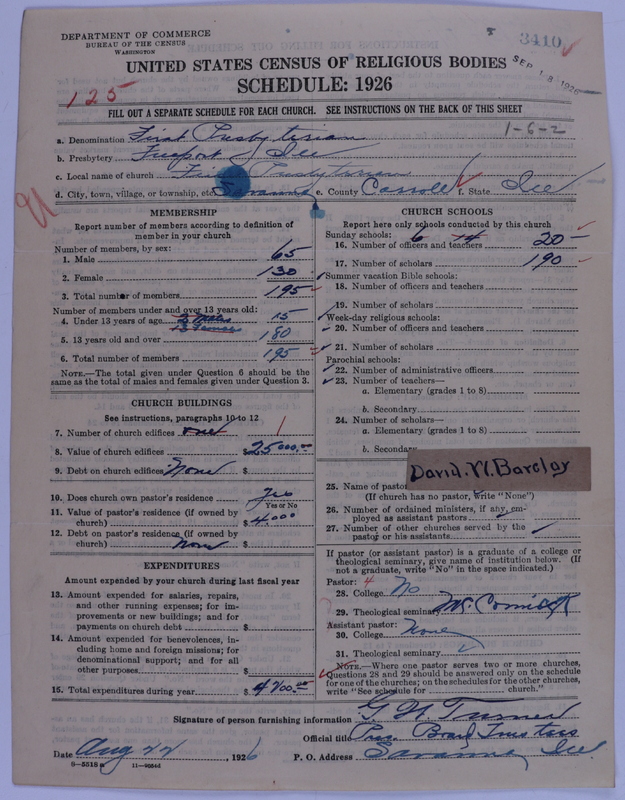 DEPARTMENT OF COMMERCE
BUREAU OF THE CENSUS
WASHINGTON
3410
SEP 18 1926
UNITED STATES CENSUS OF RELIGIOUS BODIES
SCHEDULE: 1926
125
FILL OUT A SEPARATE SCHEDULE FOR EACH CHURCH. SEE INSTRUCTIONS ON THE BACK OF THIS SHEET
1-6-2
a. Denomination First Presbyterian
b. Presbytery Freeport Ill
c. Local name of church First Presbyterian
d. City, town, village, or township, etc. Savanna e. County Carroll f. State Ill
MEMBERSHIP
Report number of members according to definition of
member in your church
Number of members, by sex:
1. Male 65
2. Female 130
3. Total number of members 195
Number of members under and over 13 years old:
4. Under 13 years of age 15
5. 13 years old and over 180
6. Total number of members 195
NOTE.—The total given under Question 6 should be
same as the total of males and females given under Question 3.
CHURCH BUILDINGS
See instructions, paragraphs 10 to 12
7. Number of church edifices one 1
8. Value of church edifices $25000.00
9. Debt on church edifices None $
10. Does church own pastor's residence Yes
Yes or No
11. Value of pastor's residence (if owned by
church) $4000
12. Debt on pastor's residence (if owned by
church) None $
EXPENDITURES
Amount expended by your church during last fiscal year
13. Amount expended for salaries, repairs,
and other running expenses; for im-
provements or new buildings; and for
payments on church debt $
14. Amount expended for benevolences, in-
cluding home and foreign missions; for
denominational support; and for all
other purposes $
15. Total expenditures during year $4200.00
CHURCH SCHOOLS
Report here only schools conducted by this church
Sunday schools: 6 14
16. Number of officers and teachers 20
17. Number of scholars 190
Summer vacation Bible schools:
18. Number of officers and teachers
19. Number of scholars
Week-day religious schools:
20. Number of officers and teachers
21. Number of scholars
Parochial schools:
22. Number of administrative officers
23. Number of teachers—
a. Elementary (grades 1 to 8)
b. Secondary
24. Number of scholars—
a. Elementary (grades 1 to 8)
b. Secondary
David. W. Barclay
25. Name of pastor
(If church has no pastor, write "None")
26. Number of ordained ministers, if any, em-
ployed as assistant pastors
27. Number of other churches served by the
pastor or his assistants
If pastor (or assistant pastor) is a graduate of a college or
theological seminary, give name of institution below. (If
not a graduate, write "No" in the space indicated.)
Pastor: 4
28. College No
29. Theological seminary McCormick
Assistant pastor:
30. College None
31. Theological seminary
NOTE.—Where one pastor serves two or more churches,
Questions 28 and 29 should be answered only on the schedule
for one of the churches; on the schedules for the other churches,
write "See schedule for church."
Signature of person furnishing information G N Turner
Official title Pres. Board Trustees
Date Aug 22, 1926 P. O. Address Savanna, Ill
9-5518a 11-9054d